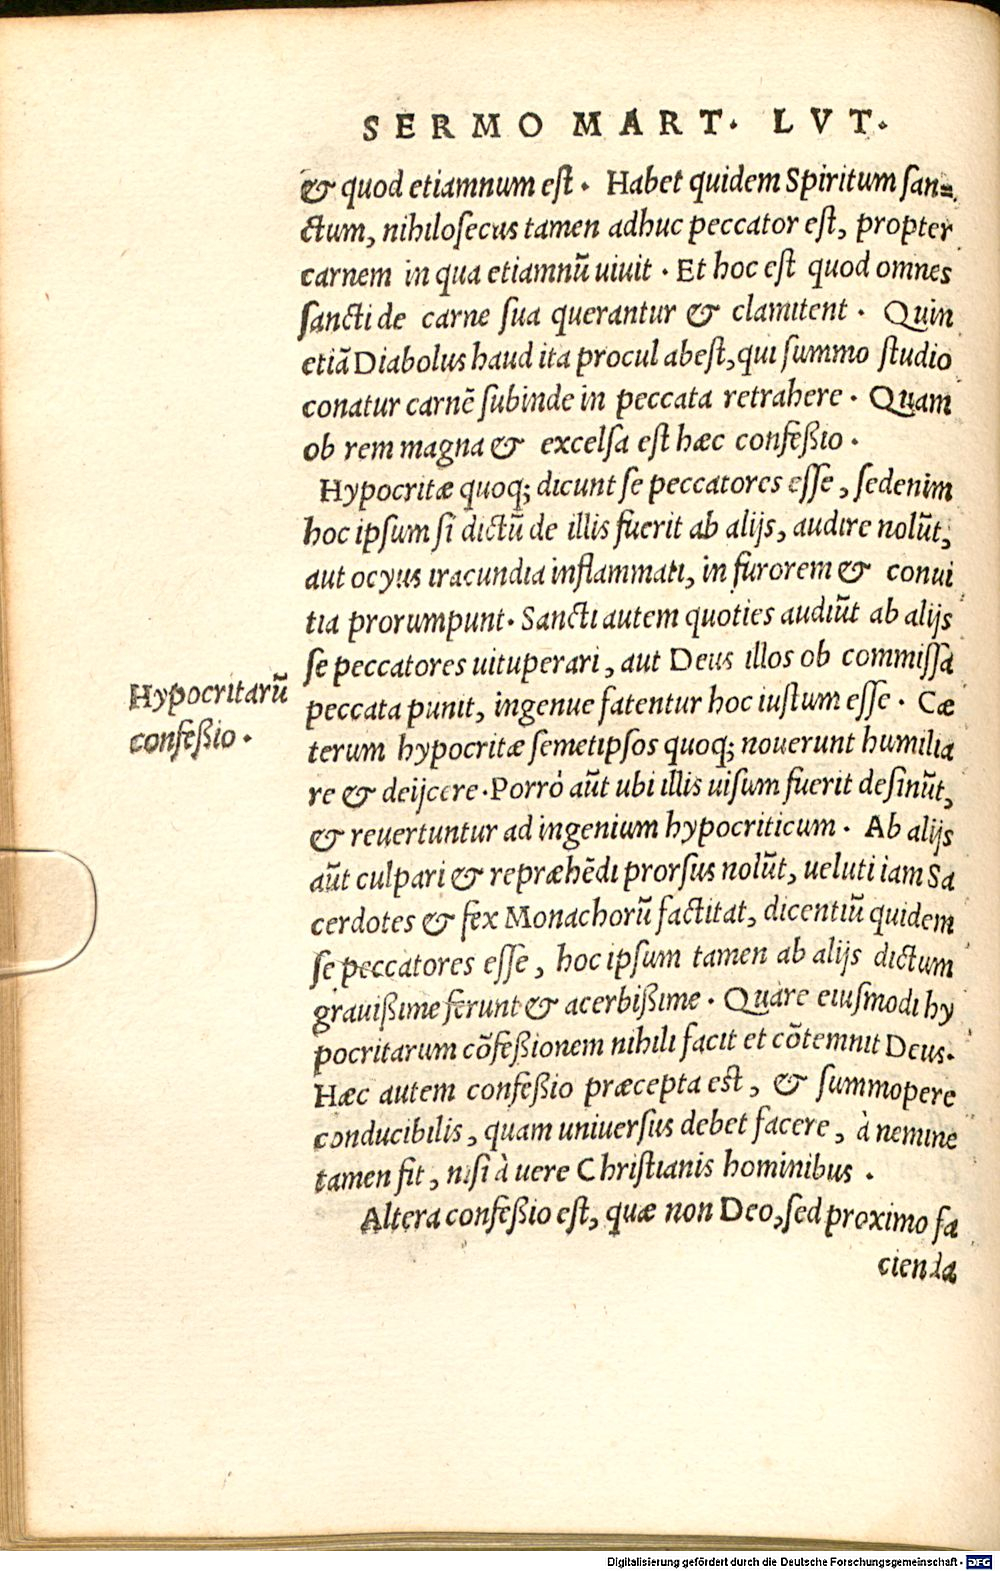 SERMO MART. LVT.
& quod etiamnum est. Habet quidem Spiritum san=
ctum, nihilosecus tamen adhuc peccator est, propter
carnem in qua etiamnū uiuit. Et hoc est quod omnes
sancti de carne sua querantur & clamitent. Quin
etiā Diabolus haud ita procul abest, qui summo studio
conatur carnē subinde in peccata retrahere. Quam
ob rem magna & excelsa est hæc confeßio.
Hypocritæ quoq; dicunt se peccatores esse, sedenim
hoc ipsum si dictū de illis fuerit ab alijs, audire nolūt,
aut ocyus iracundia inflammati, in furorem & conui
tia prorumpunt. Sancti autem quoties audiūt ab alijs
se peccatores uituperari, aut Deus illos ob commissa
Hypocritarū
confeßio.
peccata punit, ingenue fatentur hoc iustum esse. Cæ
terum hypocritæ semetipsos quoq; nouerunt humilia
re & deijcere. Porrò aūt ubi illis uisum fuerit desinūt,
& reuertuntur ad ingenium hypocriticum. Ab alijs
aūt culpari & repræhēdi prorsus nolūt, ueluti iam Sa
cerdotes & fex Monachorū factitat, dicentiū quidem
se peccatores esse, hoc ipsum tamen ab alijs dictum
grauißime ferunt & acerbißime. Quare eiusmodi hy
pocritarum cōfeßionem nihili facit et cōtemnit Deus.
Hæc autem confeßio præcepta est, & summopere
conducibilis, quam uniuersus debet facere, à nemine
tamen fit, nisi à uere Christianis hominibus.
Altera confeßio est, quæ non Deo, sed proximo fa
cienda
Digitalisierung gefördert durch die Deutsche Forschungsgemeinschaft - DFG